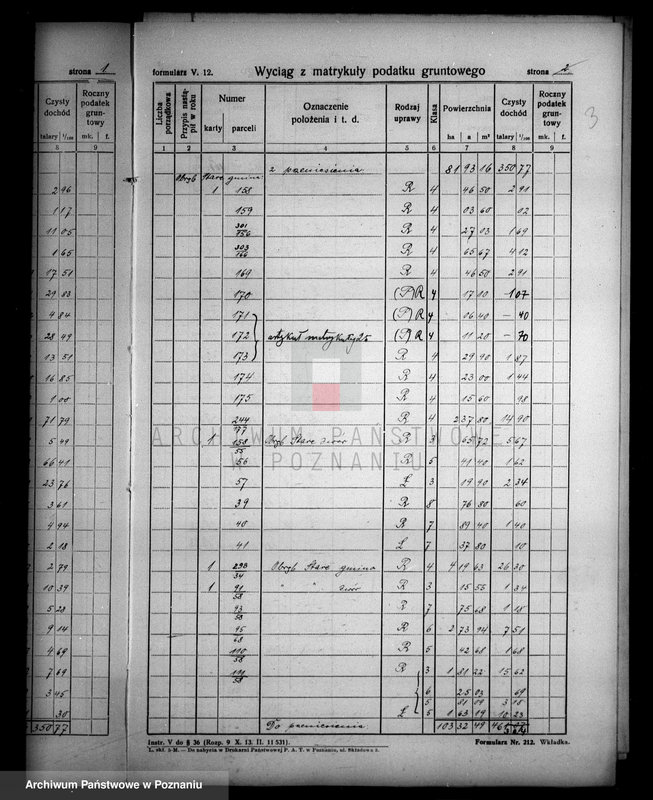 strona 1
Czysty dochód
Roczny podatek gruntowy
talary 1/100 mk. f.
8 9
2 96
1 17
11 05
1 65
17 51
29 83
4 84
28 49
13 51
16 85
1 00
71 79
5 49
66 41
23 76
3 61
4 94
2 18
2 79
10 39
5 23
9 14
4 69
7 69
3 45
30
350 77
formularz V. 12. Wyciąg z matrykuły podatku gruntowego strona 2
3
Liczba porządkowa
Przypis nastąpił w roku
Numer
karty parceli
Oznaczenie położenia i t. d.
Rodzaj uprawy
Klasa
Powierzchnia
ha a m²
Czysty dochód
talary 1/100
Roczny podatek gruntowy
mk. f.
1 2 3 4 5 6 7 8 9
z przeniesienia 81 93 16 350 77
Obręb Stare gmina:
1 158 R 4 46 50 2 91
159 R 4 03 60 02
301/156 R 4 27 03 1 69
303/166 R 4 65 67 4 12
169 R 4 46 50 2 91
170 (P) R 4 17 10 – 107
171 (P) R 4 06 40 – 40
172 artykuł matrykuły (P) R 4 11 20 – 70
173 R 4 29 90 1 87
174 R 4 23 00 1 44
175 R 4 15 60 98
244/97 R 4 2 37 80 14 90
1 158/55 Obręb Stare dwór R 3 65 72 5 67
56 R 5 41 40 1 62
57 Ł 3 19 90 2 34
39 R 8 76 80 60
40 R 7 89 40 1 40
41 Ł 7 37 80 10
1 298/34 Obręb Stare gmina R 4 4 19 63 26 30
1 91/58 " " dwór R 3 15 55 1 34
93/58 R 7 75 68 1 18
95/68 R 6 2 73 94 7 51
110/58 R 5 42 68 1 68
111/58 R 3 1 81 22 15 62
6 25 03 69
5 81 09 3 18
Ł 5 1 63 19 10 23
Do przeniesienia 103 32 49
Instr. V do § 36 (Rozp. 9 X. 13. II. 11 531).
Formularz Nr. 212. Wkładka.
L. skł. 5-M. — Do nabycia w Drukarni Państwowej P. A. T. w Poznaniu, ul. Składowa 2.
ARCHIWUM PAŃSTWOWE
W POZNANIU
Archiwum Państwowe w Poznaniu